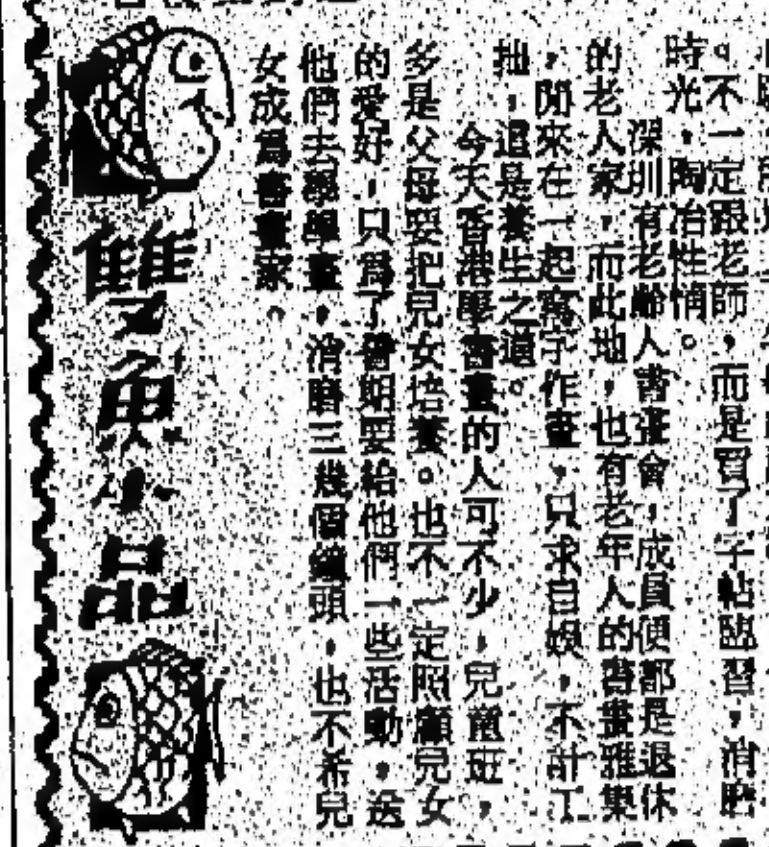 。不一定跟老師，而是買了字帖臨習，消磨
時光，陶冶性情。
深圳有老齡人書畫會，成員便都是退休
的老人家，而此地，也有老年人的書畫雅集
，閒來在一起寫字作畫，只求自娛，不計工
拙，還是養生之道。
今天香港學書畫的人可不少，兒童班，
多是父母要把兒女培養。也不一定照顧兒女
的愛好，只爲了暑期要給他們一些活動，送
他們去學學畫，消磨三幾個鐘頭，也不希兒
女成爲書畫家。
雙魚小品